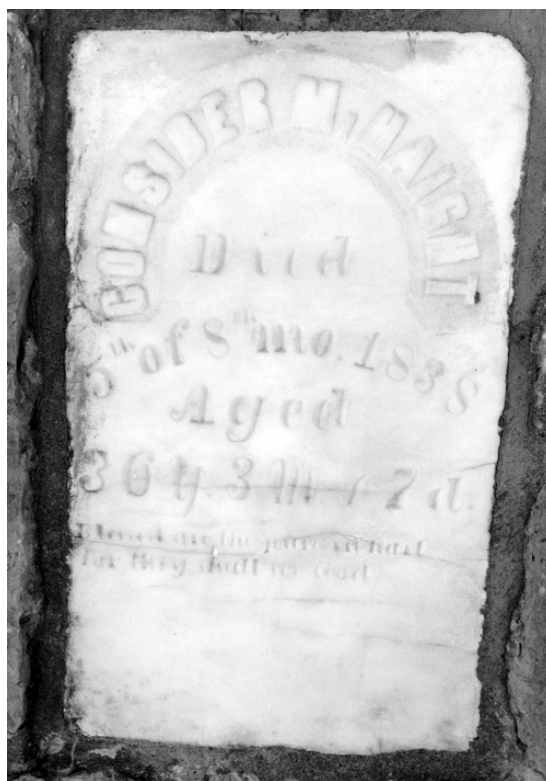 CONSIDER M. HAIGHT
Died
5th of 8th mo. 1838
Aged
36 y. 3 M. & 7 d.
Blessed are the pure in hart
for they shall se God